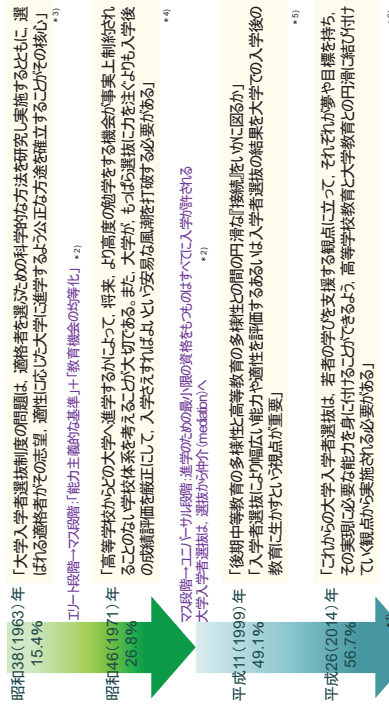 昭和38(1963)年
15.4%
「大学入学者選抜制度の問題は，適格者を選ぶための科学的な方法を研究し実施するとともに，選
ばれる適格者がその志望，適性に応じた大学に進学するよう公正な方途を確立することがその核心」
*3)
エリート段階→マス段階：「能力主義的な基準」＋「教育機会の均等化」 *2)
昭和46(1971)年
26.8%
「高等学校からどの大学へ進学するかによって，将来，より高度の勉学をする機会が事実上制約され
ることのない学校体系を考えることが大切である。また，大学が，もっぱら選抜に力を注ぐよりも入学後
の成績評価を厳正にして，入学さえすればよいという安易な風潮を打破する必要がある」
*4)
マス段階→ユニバーサル段階：進学のための最小限の資格をもつものはすべてに入学が許される
大学入学者選抜は，選抜から仲介(mediation)へ *2)
平成11(1999)年
49.1%
「後期中等教育の多様性と高等教育の多様性との間の円滑な『接続』をいかに図るか」
「入学者選抜により幅広い能力や適性を評価するあるいは入学者選抜の結果を大学での入学後の
教育に生かすという視点が重要」
*5)
平成26(2014)年
56.7%
「これからの大学入学者選抜は，若者の学びを支援する観点に立って，それぞれが夢や目標を持ち，
その実現に必要な能力を身に付けることができるよう，高等学校教育と大学教育との円滑に結び付け
ていく観点から実施される必要がある」